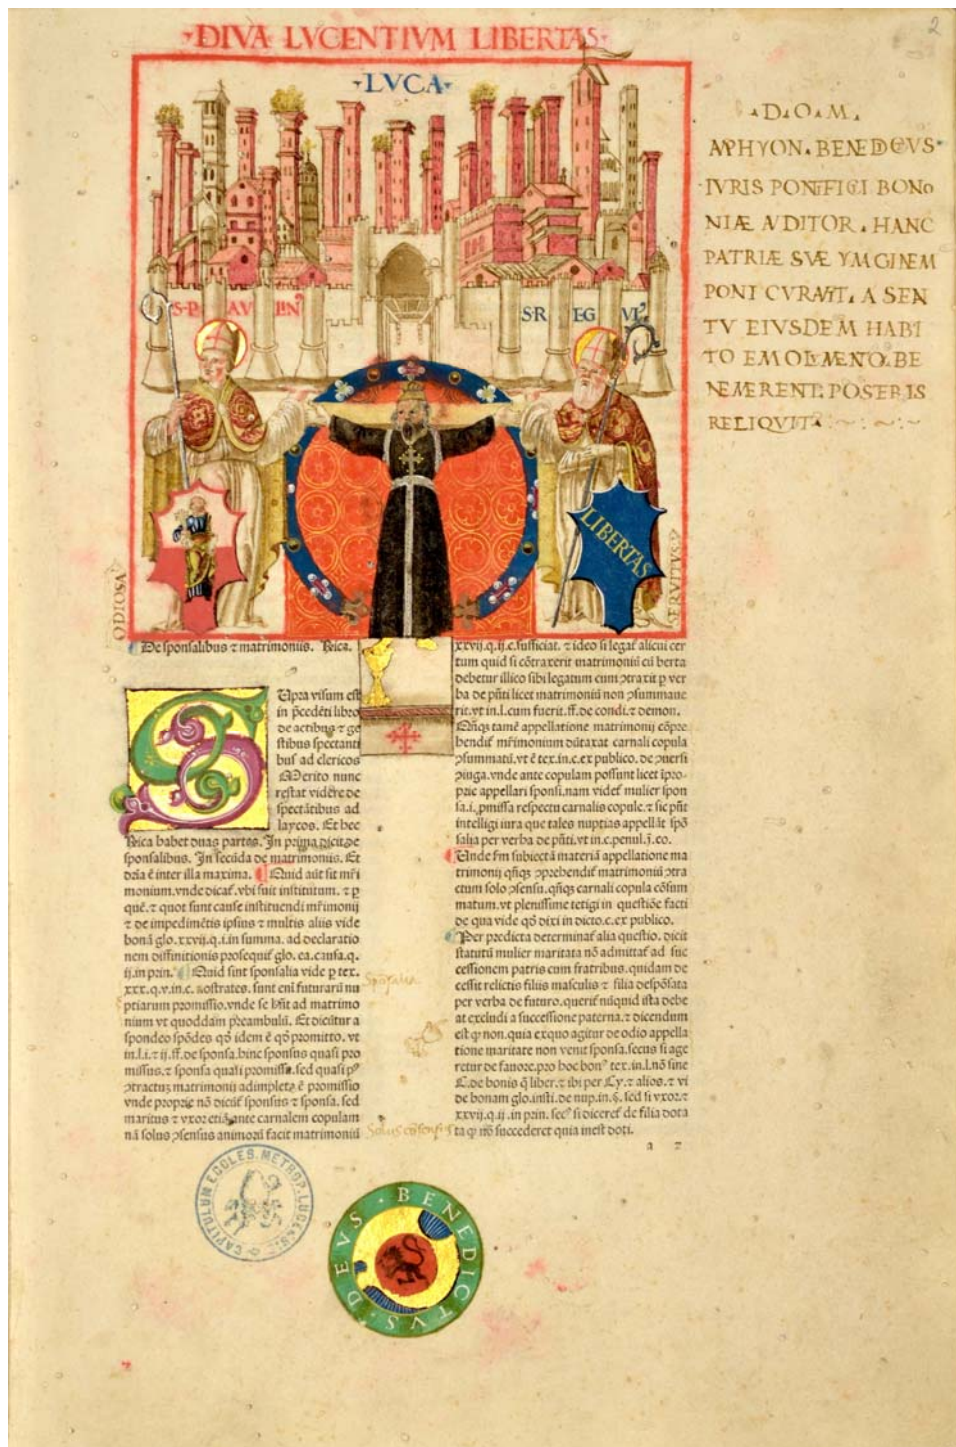 2
DIVA LVCENTIVM LIBERTAS
LVCA
D.O.M.
IVRIS PONTIFICI BONO
NIÆ AVDITOR. HANC
PATRIÆ SVÆ YMGINEM
PONI CVRAVIT. A SEN
TV EIVSDEM HABI
TO EMOLVMENTO. BE
NEMERENT. POSTERIS
RELIQVIT
S. PAVLINꝰ
S. REGVLꝰ
LIBERTAS
ODIOSA
SERVITVS
De sponsalibus ⁊ matrimoniis. Rica.
Supra visum est
in p̄cedēti libro
de actibus ⁊ ge
stibus spectanti
bus ad clericos
Merito nunc
restat videre de
spectātibus ad
laycos. Et hec
Rica habet duas partes. In prima dicit de
sponsalibus. In secūda de matrimoniis. Et
monium. vnde dicat̄. vbi fuit institutum. ⁊ p
quē. ⁊ quot sunt cause instituendi mr̄imonij
⁊ de impedimētis ipsius ⁊ multis aliis vide
bonā glo. xxvij. q. i. in summa. ad declaratio
nem diffinitionis prosequit̄ glo. ea. causa. q.
ij. in prin. Quid sint sponsalia vide p tex.
xxx. q. v. in c. nostrates. sunt eni futurarū nu
ptiarum promissio. vnde se hn̄t ad matrimo
nium vt quoddam preambulū. Et dicūtur a
spondeo spōdes qd̄ idem ē qd̄ promitto. vt
in l. i. ⁊ ij. ff. de sponsa. hinc sponsus quasi pro
missus. ⁊ sponsa quasi promissa. sed quasi pꝰ
ꝯtractuꝫ matrimonij adimpleta ē promissio
vnde proprie nō dicūt̄ sponsus ⁊ sponsa. sed
maritus ⁊ vxor etiā ante carnalem copulam
nā solus ꝯsensus animorū facit matrimoniū
Sponsalia
Solus cōsensus
xxvij. q. ij. c. sufficiat. ⁊ ideo si legat̄ alicui cer
tum quid si cōtraxerit matrimoniū cū berta
debetur illico sibi legatum cum ꝯtraxit p ver
ba de pn̄ti licet matrimoniū non ꝯsummaue
rit. vt in. l. cum fuerit. ff. de condi. ⁊ demon.
Qn̄qꝫ tamē appellatione matrimonij cōpre
hendit̄ mr̄imonium dūtaxat carnali copula
ꝯsummatū. vt ē tex. in. c. ex publico. de ꝯuersi
ꝯiuga. vnde ante copulam possunt licet īpro
prie appellari sponsi. nam videt̄ mulier spon
sa. i. ꝓmissa respectu carnalis copule. ⁊ sic pn̄t
intelligi iura que tales nuptias appellāt spō
salia per verba de pn̄ti. vt in. c. penul. j. eo.
Unde fm subiectā materiā appellatione ma
trimonij qn̄qꝫ ꝯprehendit̄ matrimoniū ꝯtra
ctum solo ꝯsensu. qn̄qꝫ carnali copula cōsum
matum. vt plenissime tetigi in questiōe facti
de qua vide qd̄ dixi in dicto. c. ex publico.
Per predicta determinat̄ alia questio. dicit
statutū mulier maritata nō admittat̄ ad suc
cessionem patris cum fratribus. quidam de
cessit relictis filiis masculis ⁊ filia despōsata
per verba de futuro. querit̄ nūquid ista debe
at excludi a successione paterna. ⁊ dicendum
est ꝙ non. quia exquo agitur de odio appella
tione maritate non venit sponsa. secus si age
retur de fauore. pro hoc bonꝰ tex. in. l. nō sine
C. de bonis q̄ liber. ⁊ ibi per Cy. ⁊ alios. ⁊ vi
de bonam glo. insti. de nup. in. §. sed si vxor. ⁊
xxvij. q. ij. in prin. secꝰ si diceret̄ de filia dota
ta ꝙ nō succederet quia inest doti.
a 2
CAPITULUM ECCLES. METROP. LUCENSIS
BENEDICTVS DEVS